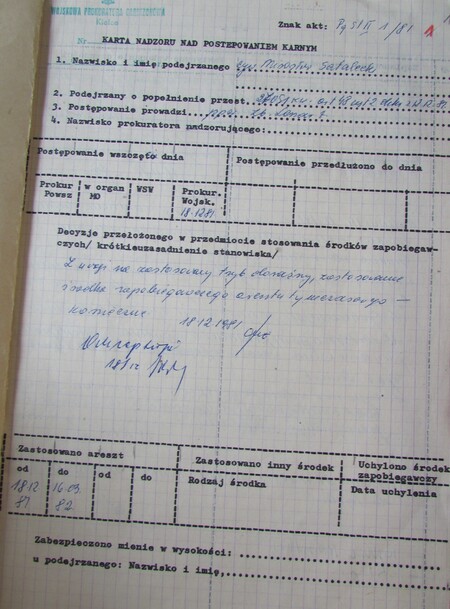 WOJSKOWA PROKURATURA GARNIZONOWA
Znak akt: Pg Śl II 1/81 1
Nr
KARTA NADZORU NAD POSTEPOWANIEM KARNYM
1. Nazwisko i imię podejrzanego cyw. Mirosław
2. Podejrzany o popełnienie przest.
3. Postępowanie prowadzi
4. Nazwisko prokuratora nadzorującego:
Postępowanie wszczęto dnia Postępowanie przedłużono do dnia
Prokur Powsz w organ MO WSW Prokur. Wojsk.
18.12.81
Decyzje przełożonego w przedmiocie stosowania środków zapobiegaw-
czych/ krótkieuzasadnienie stanowiska/
Z uwagi na zastosowany tryb doraźny, zastosowanie
środka zapobiegawczego aresztu tymczasowego —
konieczne
18.12.1981
18 XII
Zastosowano areszt Zastosowano inny środek Uchylono środek zapobiegawczy
od do od do Rodzaj środka Data uchylenia
18.12 81 16.03. 82
Zabezpieczono mienie w wysokości:
u podejrzanego: Nazwisko i imię,